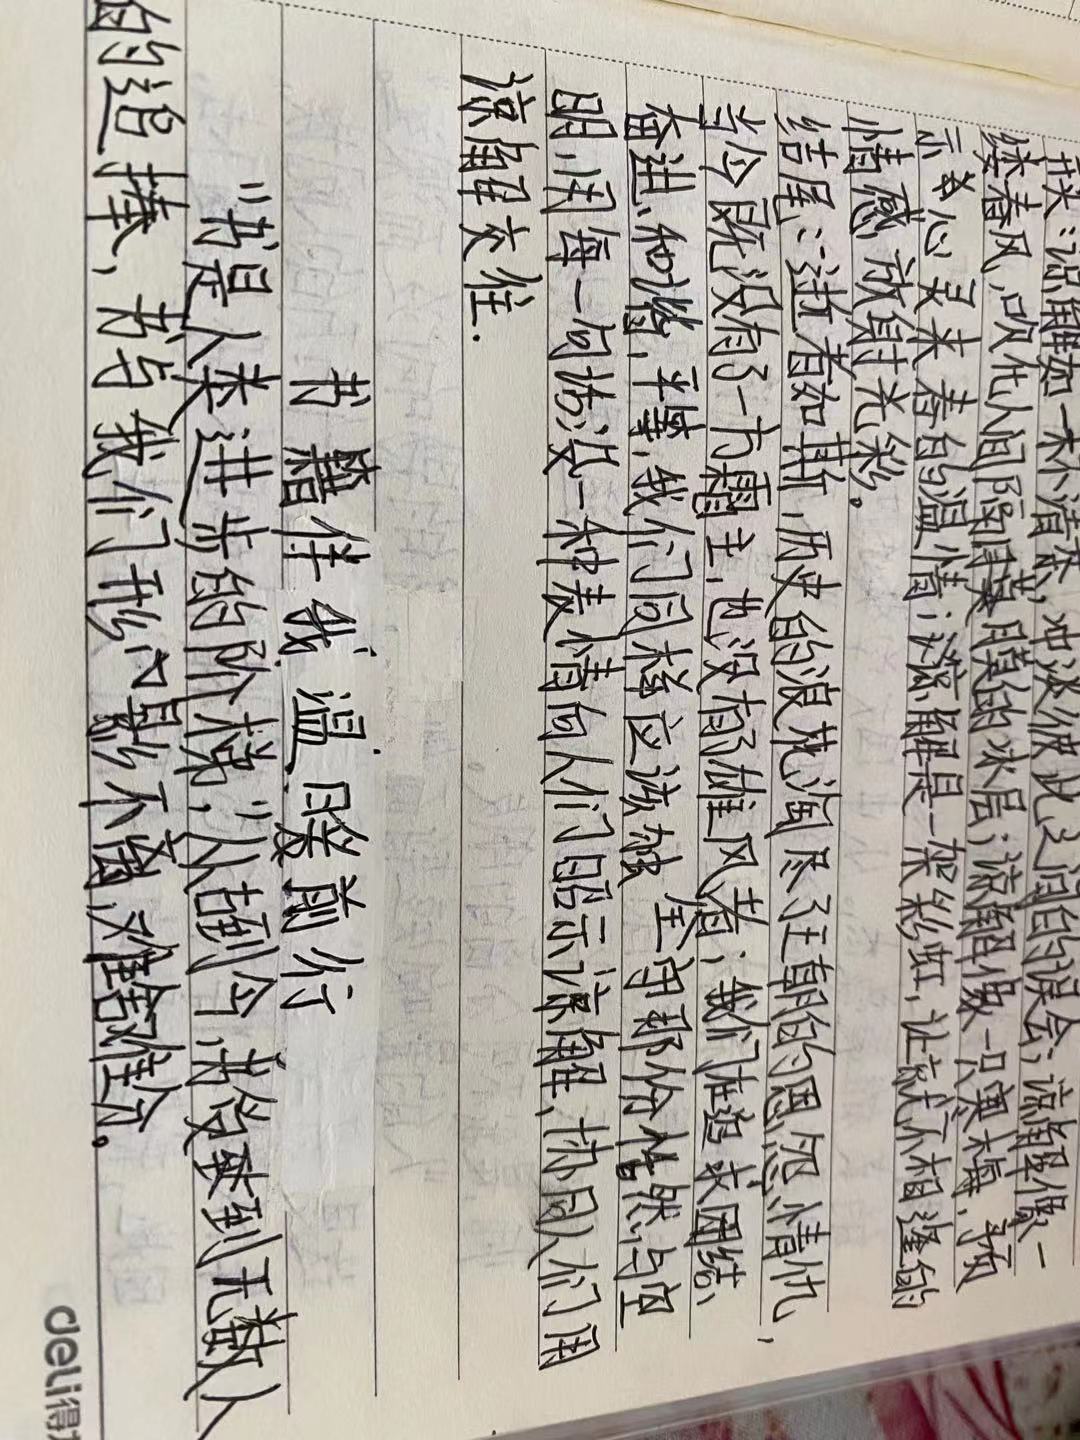 扶:谅解如一杯清茶,冲淡彼此之间的误会;谅解像一
缕春风,吹化人间隔阂臭膜的冰层;谅解像一只寒梅,预
示多心又来春的温情;谅解是一架彩虹,让就不相逢的
情感,放射光彩。
结尾:逝者如斯,历史的浪花淘尽了王朝的恩怨情仇,
当今既没有了一方霸主,也没有了雄风者;我们在追求团结、
奋进、和谐、平等,我们同样应该 坚守那份恬然与空
明,用每一句话没一种表情向人们昭示谅解,协同人们用
谅解交往.
书籍伴我温暖前行
"书是人类进步的阶梯;"从古到今,书受到无数人
的追捧,书与我们形影不离,难舍难分。
deli得力